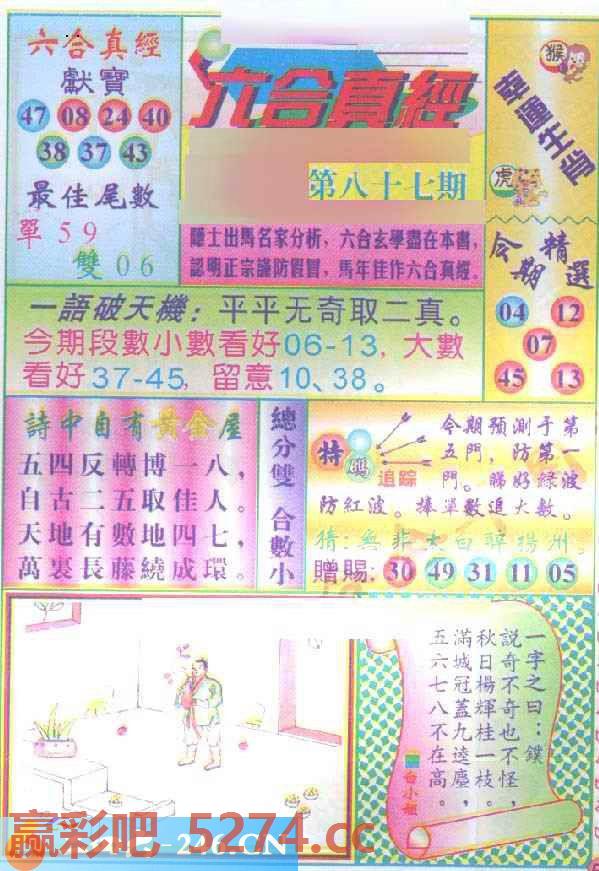 六合真經
獻寶
47 08 24 40
38 37 43
最佳尾數
單59
雙06
六合真經
第八十七期
隱士出馬名家分析,六合玄學盡在本書,
認明正宗謹防假冒,馬年佳作六合真經.
猴
幸運生肖
虎
今期精選
04 12
07
45 13
一語破天機:平平无奇取二真。
今期段數小數看好06-13,大數
看好37-45,留意10、38。
詩中自有黃金屋
五四反轉博一八,
自古二五取佳人。
天地有數地四七,
萬裏長藤繞成環。
總分雙 合數小
特碼
追踪
今期預測于第
五門,防第一
門。睇好綠波
防紅波。捧單數追大數。
猜:無非太白醉揚州。
贈賜:30 49 31 11 05
一字之曰:鏷
說奇不奇也不怪,
秋日楊輝桂一枝。
滿城冠蓋九逵塵,
五六七八不在高。
白小姐
赢彩吧 5274.cc
246.CN